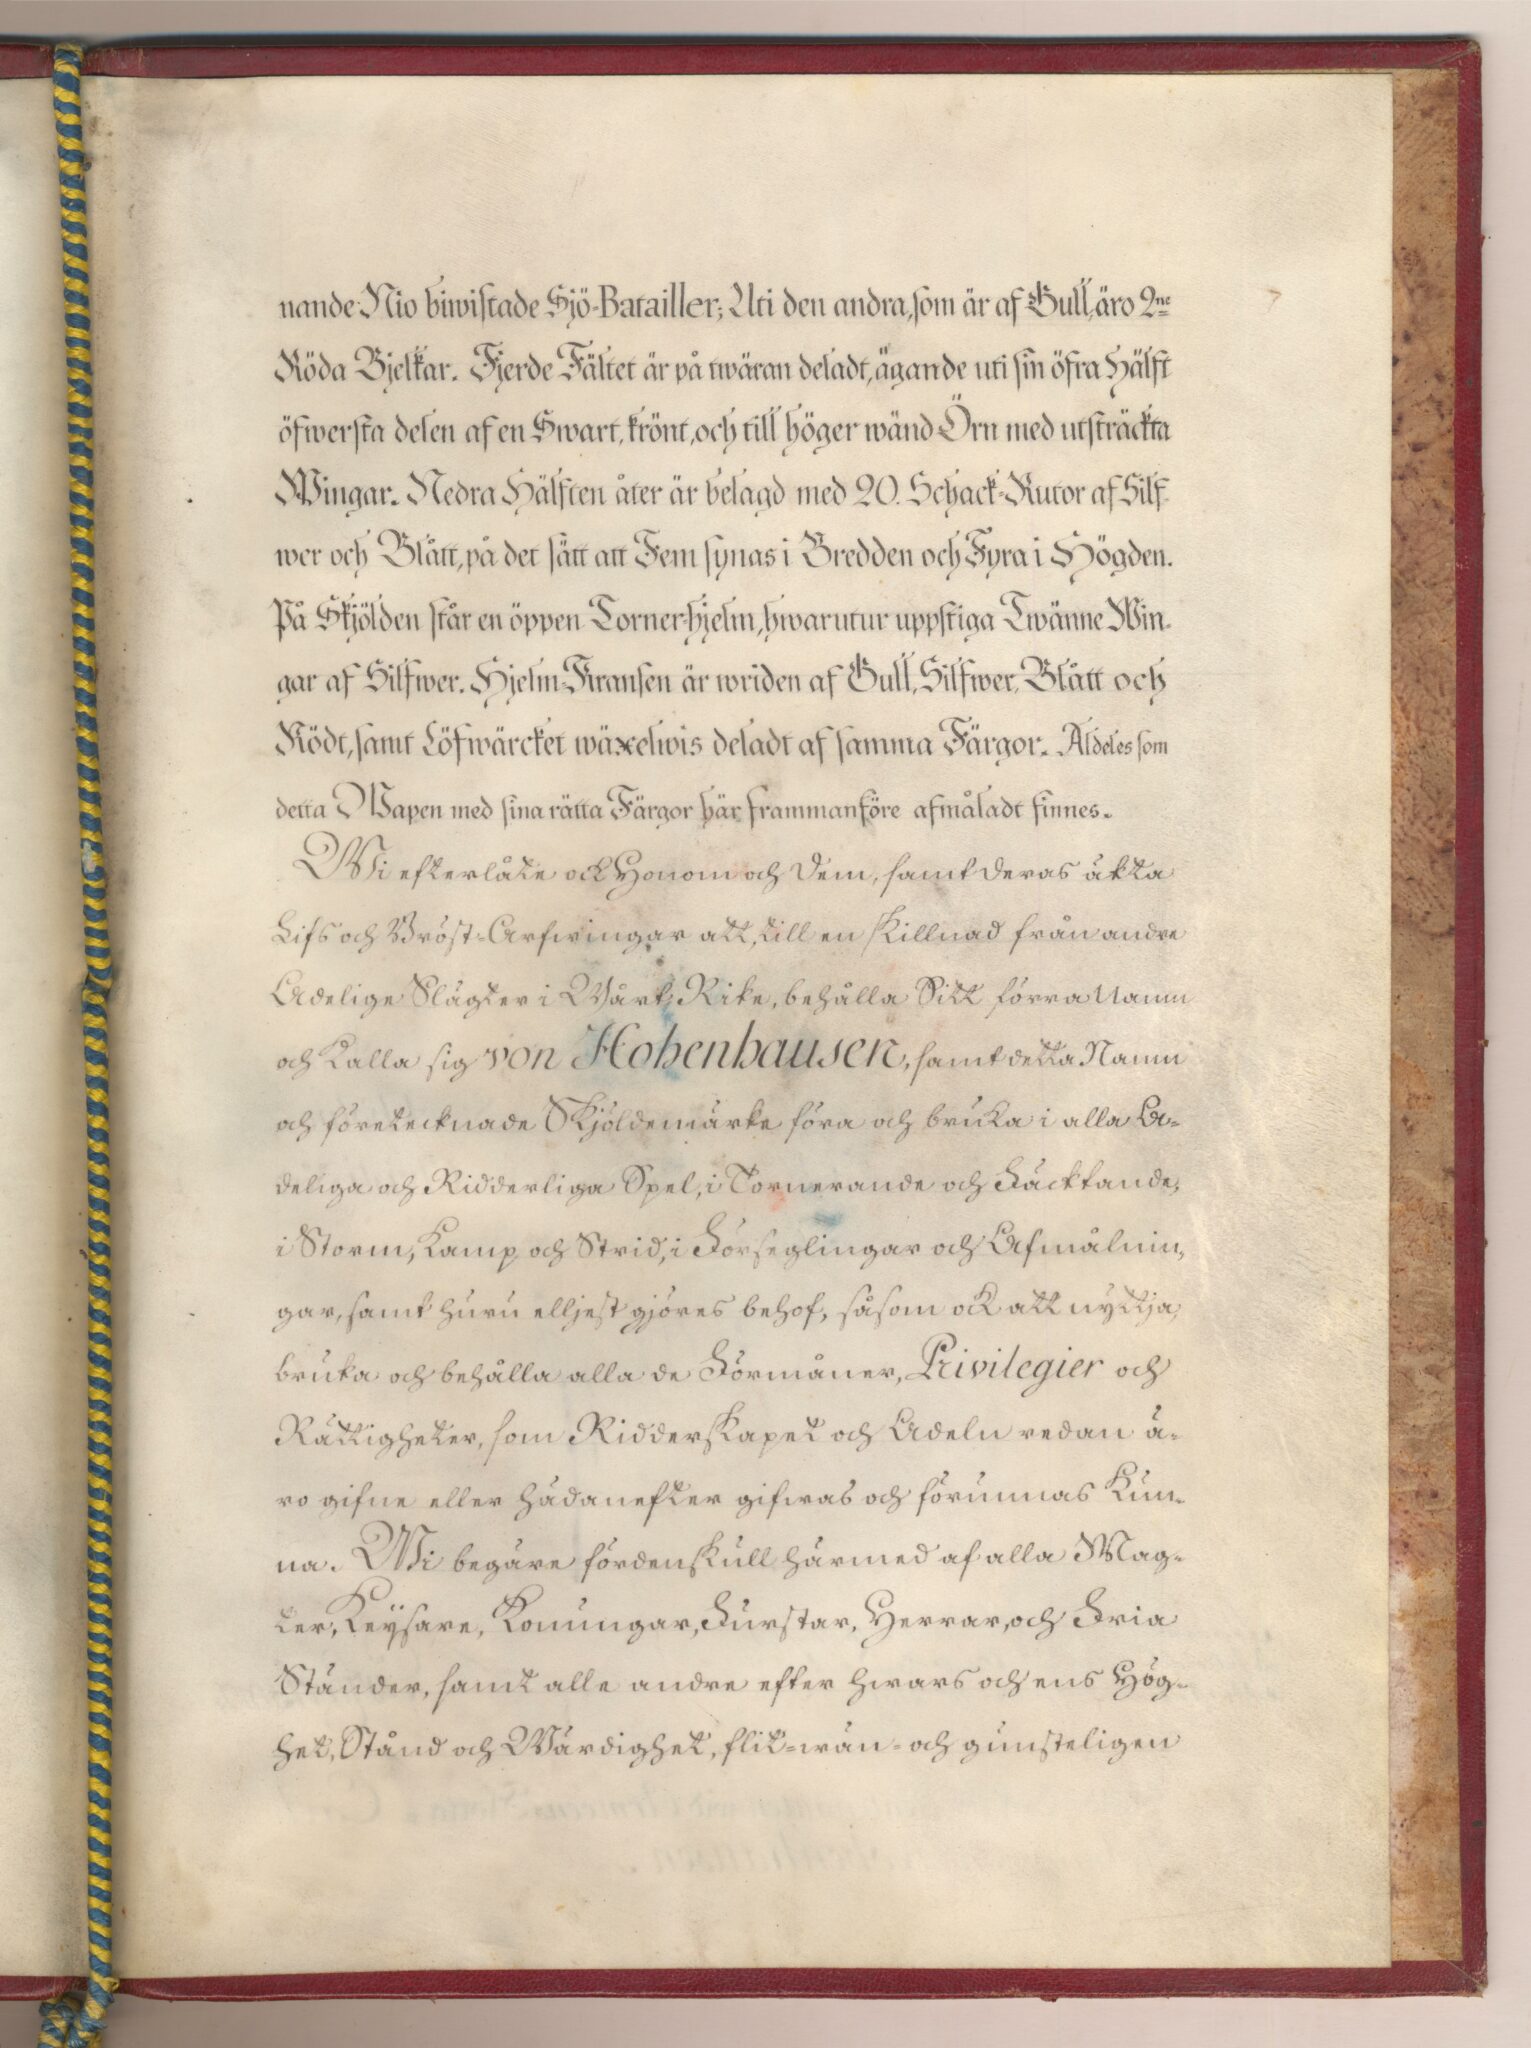 nande Nio biwistade Sjö-Batailler; Uti den andra, som är af Gull, äro 2ne
Röda Bjelkar. Fjerde Fältet är på twäran deladt, ägande uti sin öfra Hälft
öfwersta delen af en Swart, krönt, och till höger wänd Örn med utsträckta
Wingar. Nedra Hälften åter är belagd med 20. Schack-Rutor af Silf-
wer och Blått, på det sätt att Fem synas i Bredden och Fyra i Högden.
På Skjölden står en öppen Torner-hjelm, hwarutur uppstiga Twänne Win-
gar af Silfwer. Hjelm-Kransen är wriden af Gull, Silfwer, Blått och
Rödt, samt Löfwärcket wäxelwis deladt af samma Färgor. Aldeles som
detta Wapen med sina rätta Färgor här frammanföre afmåladt finnes.
Wi efterlåte ock Honom och Dem, samt deras äkta
Lifs och Bröst-Arfwingar att, till en skillnad från andre
Adelige Slägter i Wårt Rike, behålla Sitt förra Namn
och kalla sig von Hohenhausen, samt detta Namn
och företecknade Skjöldemärke föra och bruka i alla A-
deliga och Ridderliga Spel, i Tornerande och Fäcktande,
i Storm, Kamp och Strid, i Förseglingar och Afmålnin-
gar, samt huru elljest gjöres behof, såsom ock att nyttja,
bruka och behålla alla de Förmåner, Privilegier och
Rättigheter, som Ridderskapet och Adeln redan ä-
ro gifne eller hädanefter gifwas och förunnas kun-
na. Wi begäre fördenskull härmed af alla Mag-
ter, Keysare, Konungar, Furstar, Herrar, och Fria
Ständer, samt alle andre efter hwars och ens Hög-
het, Stånd och Wärdighet, flit-wän- och gunsteligen